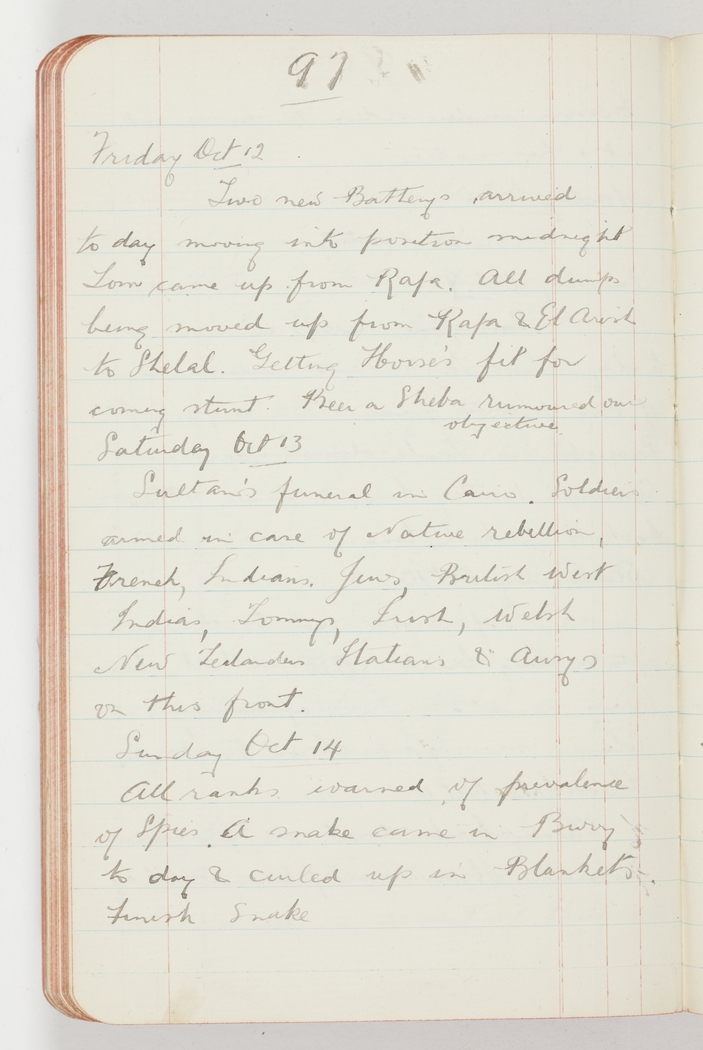 97
Friday Oct 12
Two new Batterys arrived
to day moving into position midnight
Tom came up from Rafa. All dumps
being moved up from Rafa & El Arish
to Shelal. Getting Horse's fit for
coming stunt. Beer a Sheba rumoured our
objective
Saturday Oct 13
Sultan's funeral in Cairo. Soldiers
armed in case of Native rebellion,
French, Indians. Jews, British West
Indias, Tommys, Irish, Welsh
New Zealanders Italians & Aussys
on this front.
Sunday Oct 14
All ranks warned of prevalence
of Spies. A snake came in Bivvy
to day & curled up in Blankets.
Finish Snake